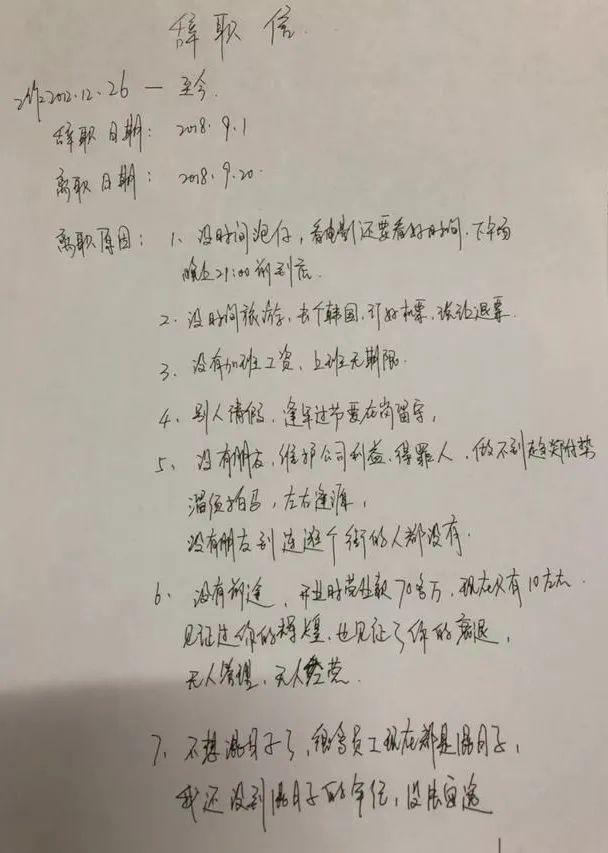 辞职信
工作2012.12.26 — 至今.
辞职日期: 2018.9.1
离职日期: 2018.9.20.
离职原因: 1、没时间泡仔, 看电影还要看好时间. 下午场
晚上21:00前到店.
2. 没时间旅游, 去个韩国, 订好机票, 被迫退票.
3、没有加班工资, 上班无期限.
4、别人请假, 逢年过节要在岗留守,
5、没有朋友, 维护公司利益, 得罪人, 做不到趋炎附势
溜须拍马, 左右逢源,
没有朋友到连逛个街的人都没有.
6、没有前途, 开业时营业额70多万, 现在只有10左右.
见证过你的辉煌, 也见证了你的衰退,
无人管理, 无人经营.
7、不想混日子了, 很多员工现在都是混日子,
我还没到混日子的年纪, 没法逗留